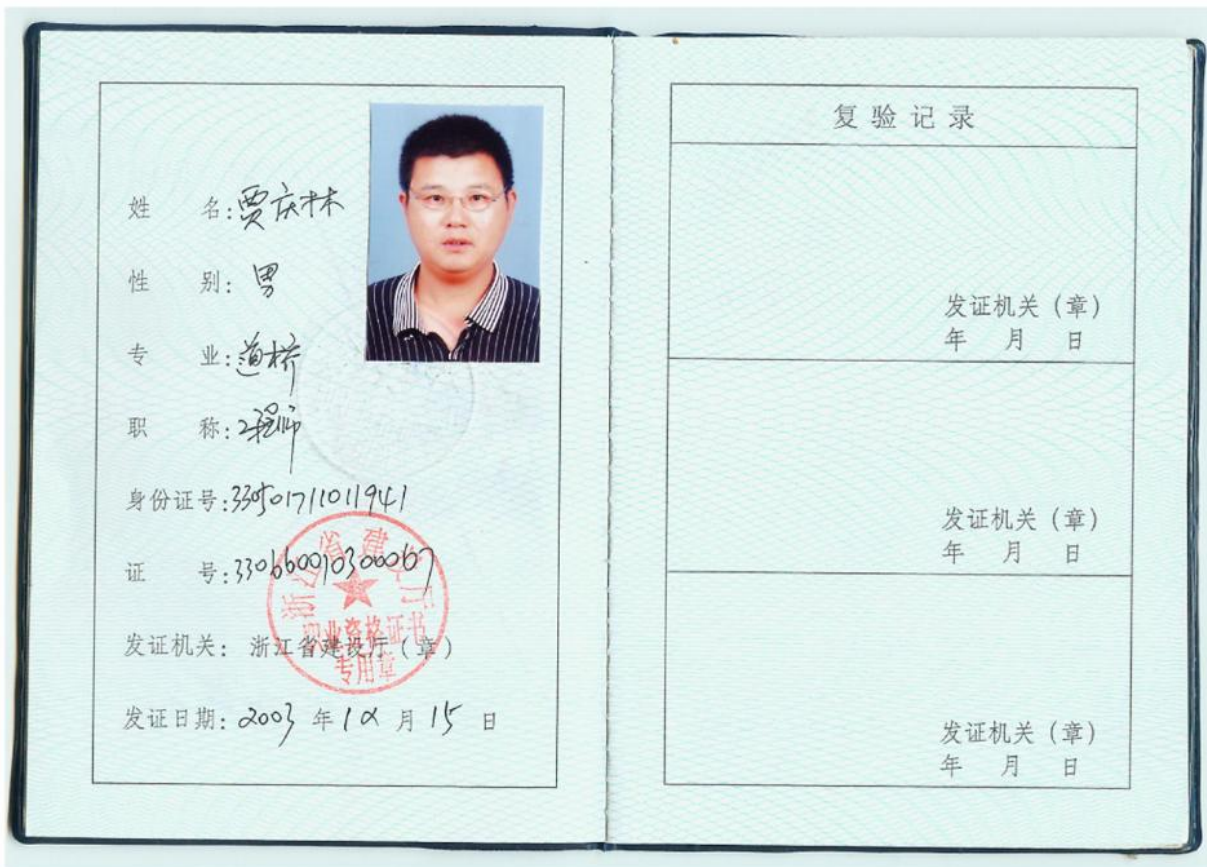 姓 名:贾庆林
性 别: 男
专 业:道桥
职 称:工程师
身份证号:330501711011941
证 号:330660010300067
发证机关: 浙江省建设厅(章)
发证日期: 2003 年 12 月 15 日
浙江省建设厅
职业资格证书
专用章
复验记录
发证机关(章)
年 月 日
发证机关(章)
年 月 日
发证机关(章)
年 月 日